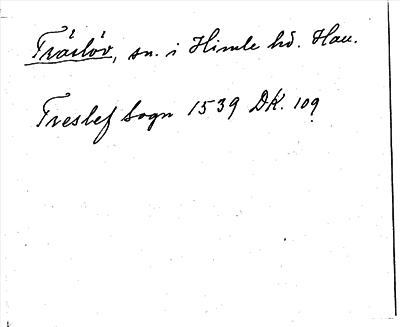 Tråslöv, sn. i Himle hd. Hall.
Treslef Sogn 1539 DK. 109